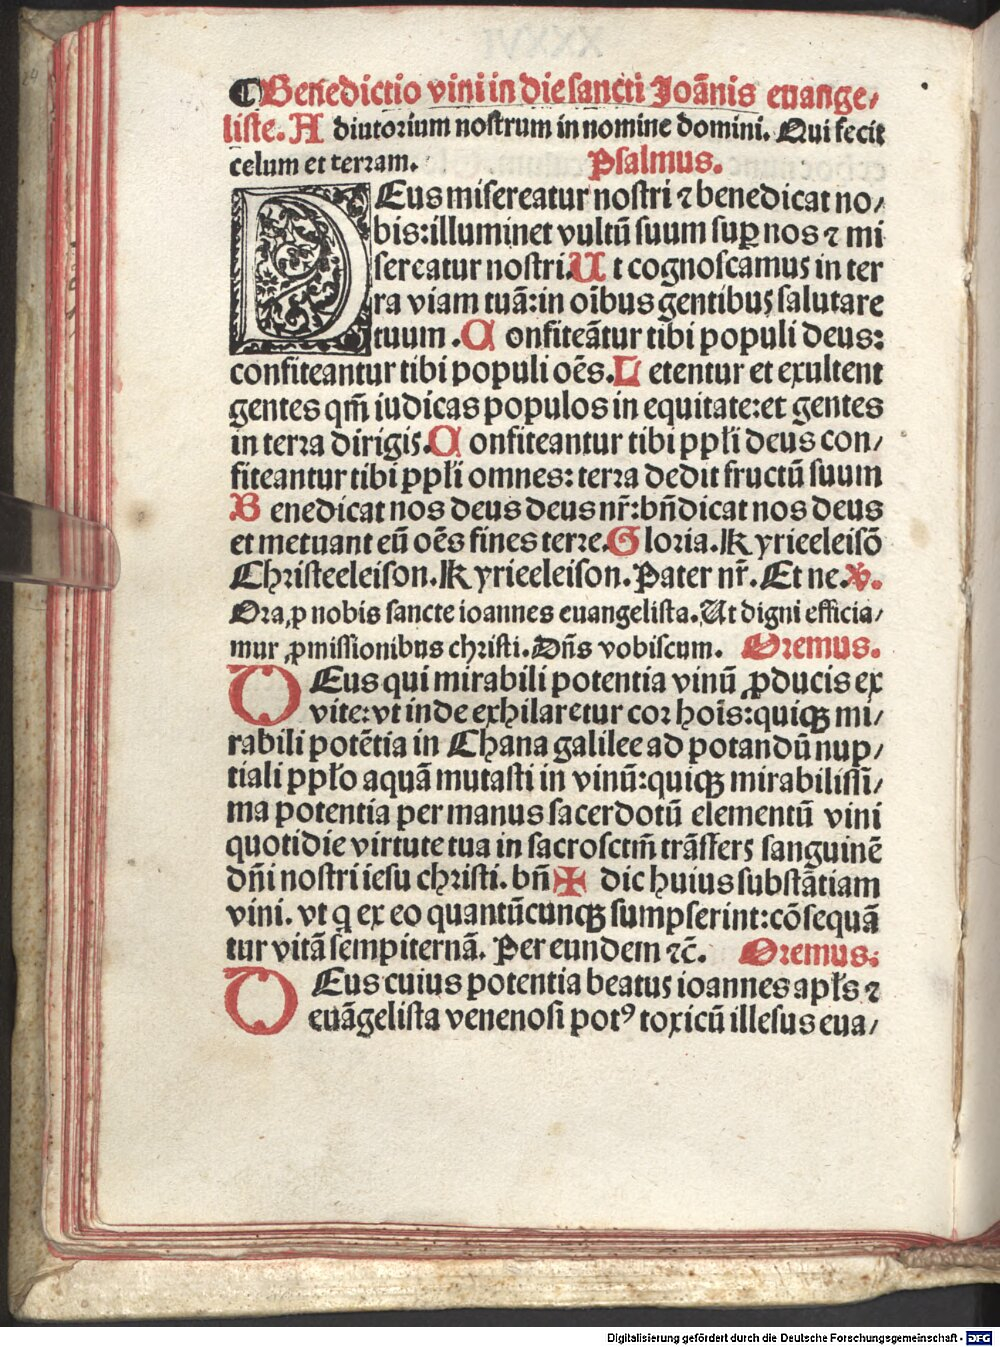 ¶ Benedictio vini in die sancti Joãnis euange⸗
liste. A diutorium nostrum in nomine domini. Qui fecit
celum et terram. Psalmus.
DEus misereatur nostri ⁊ benedicat no⸗
bis: illuminet vultũ suum suꝑ nos ⁊ mi
sereatur nostri. U t cognoscamus in ter
ra viam tuã: in oĩbus gentibus salutare
tuum. C onfiteãtur tibi populi deus:
confiteantur tibi populi oẽs. L etentur et exultent
gentes qm̃ iudicas populos in equitate: et gentes
in terra dirigis. C onfiteantur tibi ppɫi deus con⸗
fiteantur tibi ppɫi omnes: terra dedit fructũ suum
B enedicat nos deus deus nr̃: bñdicat nos deus
et metuant eũ oẽs fines terre. G loria. K yrieeleisõ
Christeeleison. K yrieeleison. Pater nr̃. Et ne. ℣.
Ora ꝓ nobis sancte ioannes euangelista. Ut digni efficia⸗
mur ꝓmissionibus christi. Dñs vobiscum. Oremus.
DEus qui mirabili potentia vinũ ꝓducis ex
vite: vt inde exhilaretur cor hoĩs: quiqꝫ mi⸗
rabili potẽtia in Chana galilee ad potandũ nup⸗
tiali ppɫo aquã mutasti in vinũ: quiqꝫ mirabilissi⸗
ma potentia per manus sacerdotũ elementũ vini
quotidie virtute tua in sacrosctm̃ trãsfers sanguinẽ
dñi nostri iesu christi. bñ ✠ dic huius substãtiam
vini. vt q ex eo quantũcunqꝫ sumpserint: cõsequã
tur vitã sempiternã. Per eundem ⁊c̃. Oremus:
DEus cuius potentia beatus ioannes apɫs ⁊
euãgelista venenosi potꝰ toxicũ illesus eua⸗
Digitalisierung gefördert durch die Deutsche Forschungsgemeinschaft - DFG